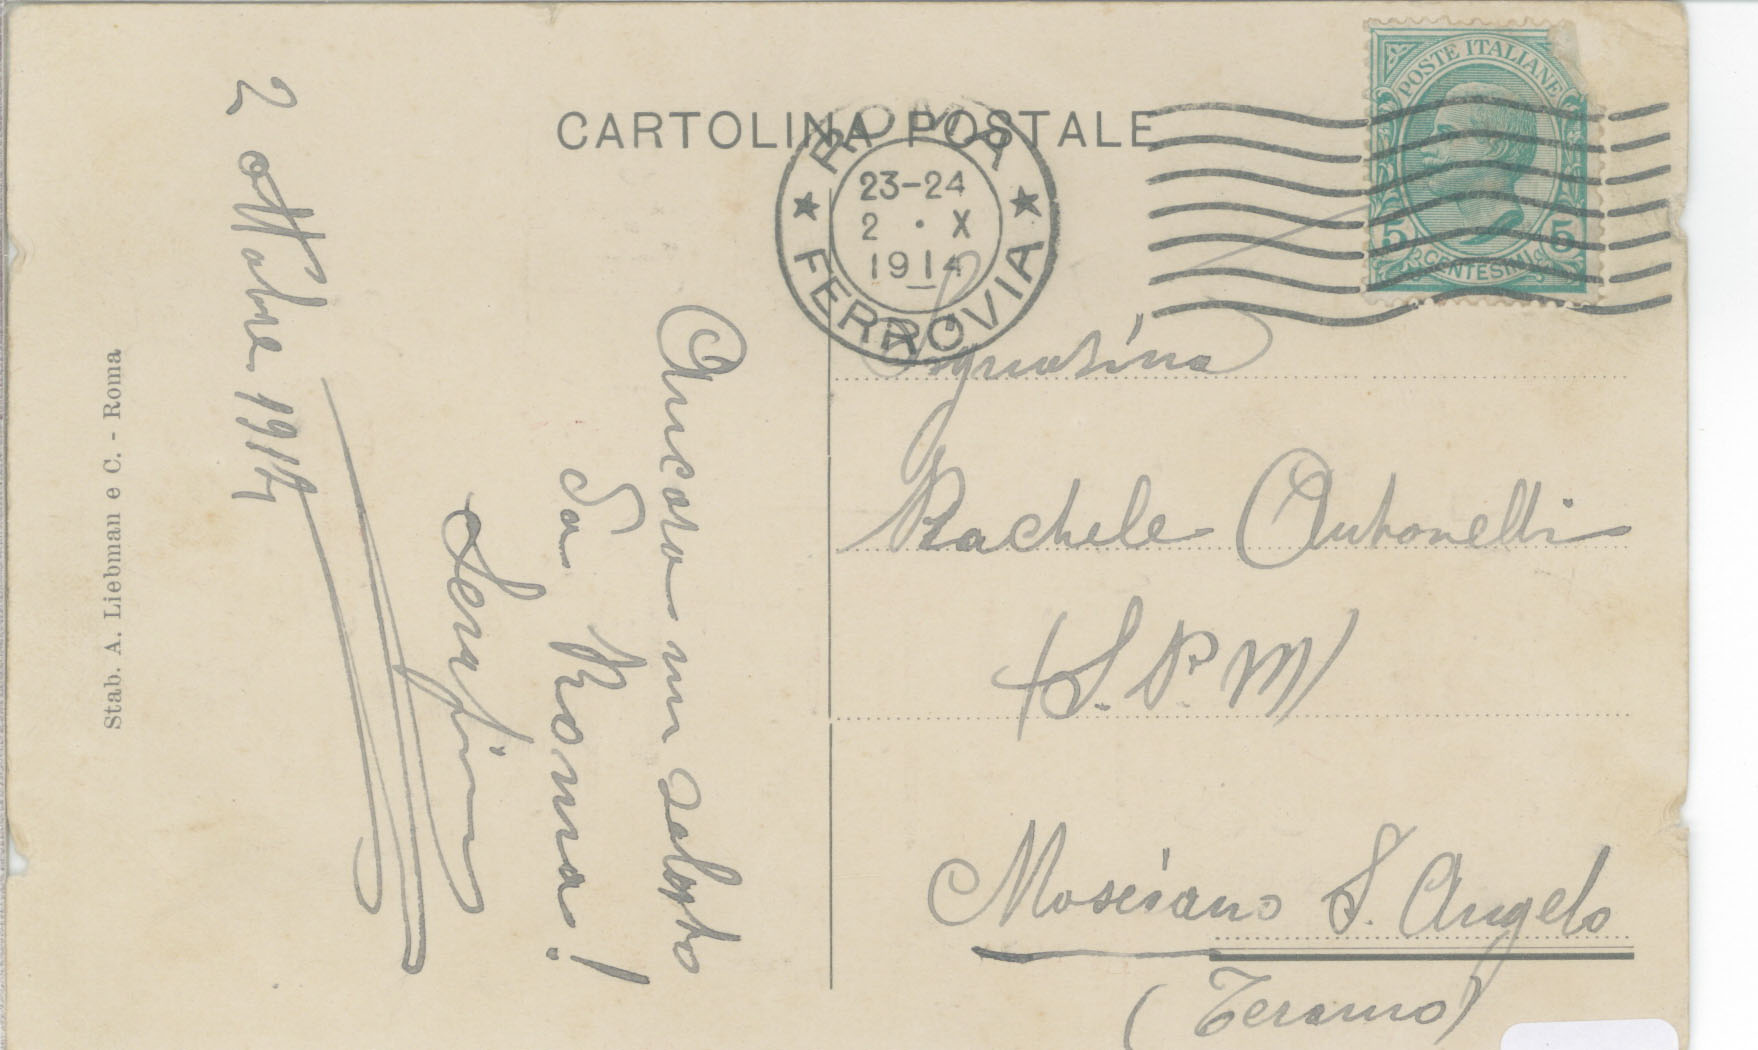 CARTOLINA POSTALE
POSTE ITALIANE
5 5
CENTESIMI
ROMA
23-24
2 · X
1914
FERROVIA
2 ottobre 1914
Ancora un saluto
da Roma!
Serafino
Rachele Antonelli
(S. P. M)
Mosciano S. Angelo
(Teramo)
Stab. A. Liebman e C. - Roma